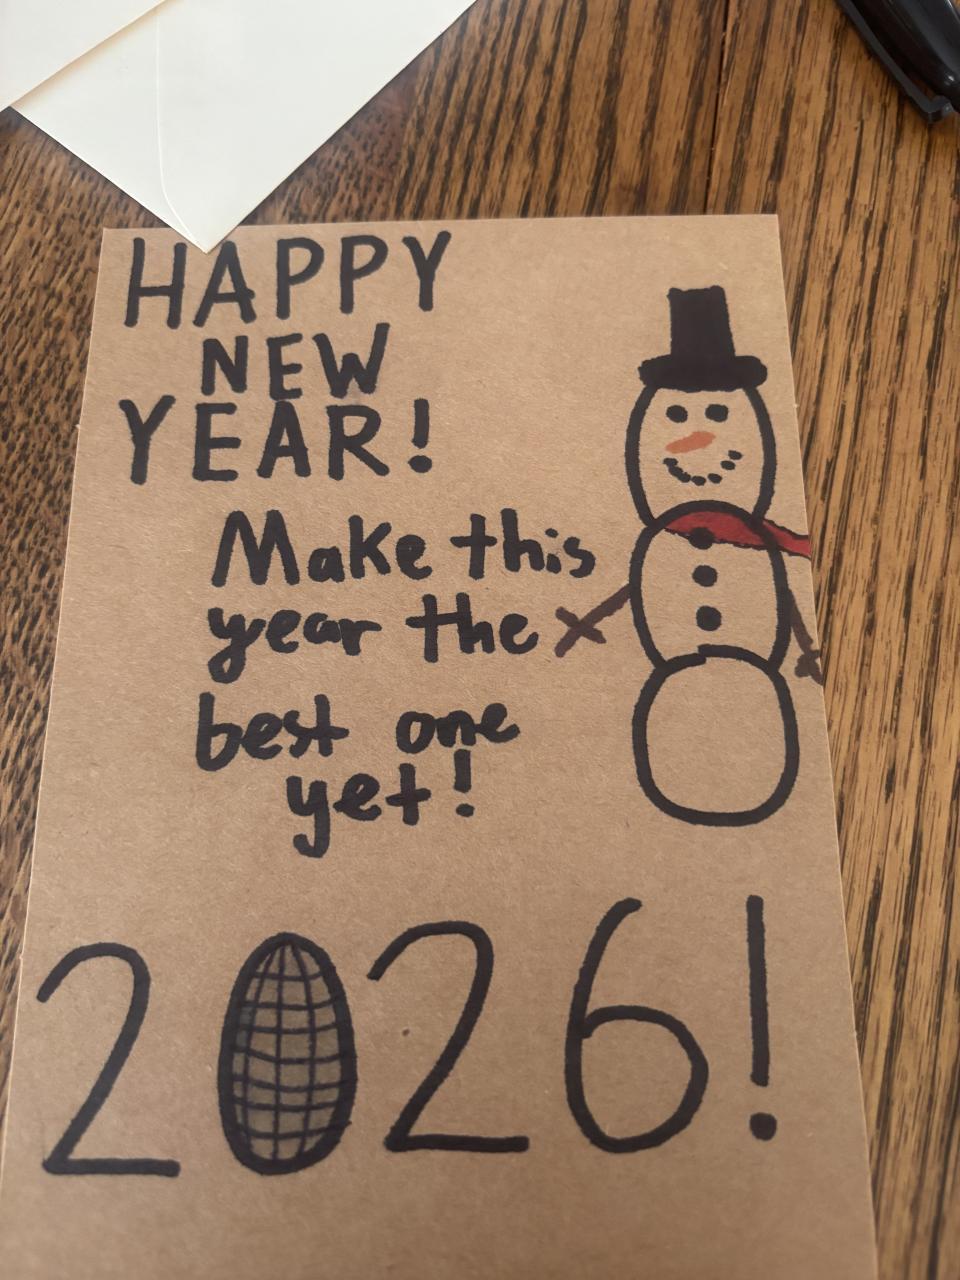 HAPPY
NEW
YEAR!
Make this
year the
best one
yet!
2026!